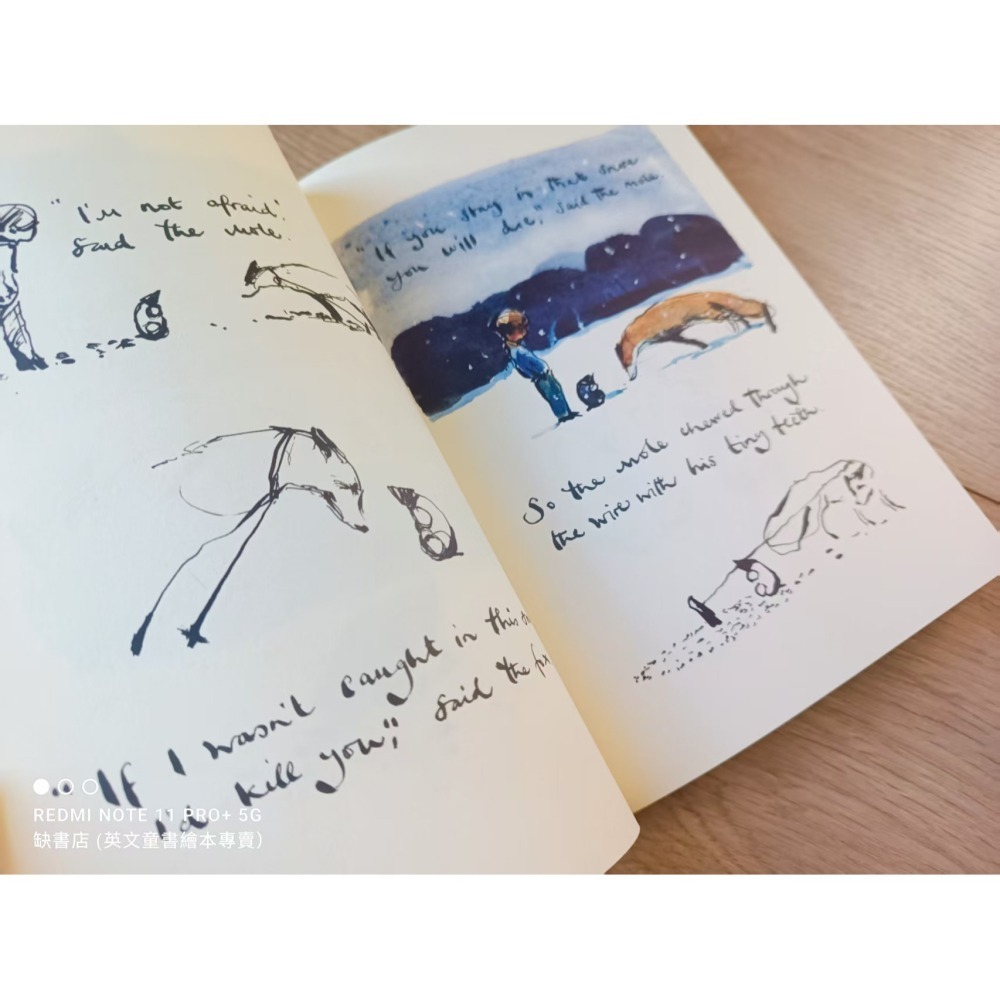 "I'm not afraid",
said the mole.
"If I wasn't caught in this
I'd kill you", said the fox
"If you stay in that snare
you will die", said the mole.
So the mole chewed through
the wire with his tiny teeth.
REDMI NOTE 11 PRO+ 5G
缺書店 (英文童書繪本專賣)